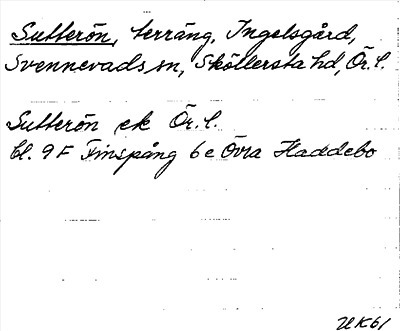 Sutterön, terräng, Ingelsgård,
Svennevads sn, Sköllersta hd, Ör. l.
Sutterön ek Ör. l.
bl. 9 F Finspång 6 e Övra Haddebo
UK61